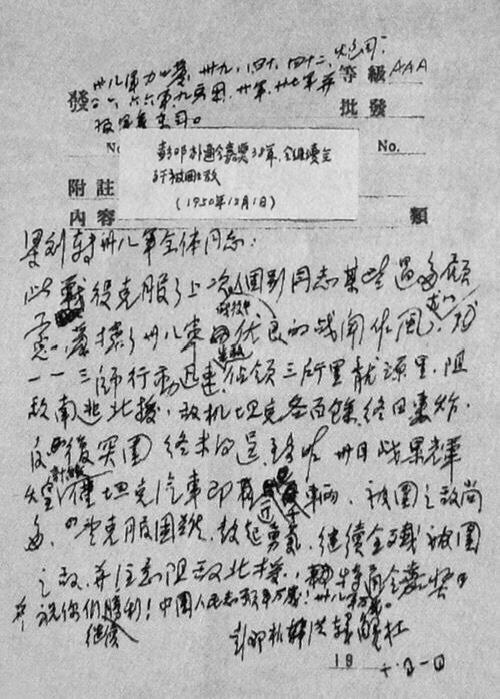 卅八军力の基，卅九，四十，四十二，炮司，
發 六，六六军，九兵团，廿军，廿七军并 等級AAA
批發
报军委东司。
No. No.
彭邓朴通令嘉奖38军，令继续全
歼被围之敌
附註
(1950年12月1日)
内容 類
梁刘转卅八军全体同志：
此战役克服了上次个别同志某些过多顾
虑，发挥了卅八军优良的战斗作风，尤以
一一三师行动迅速，先敌占领三所里龙源里，阻
敌南逃北援，敌机坦克各百餘，终日轰炸，
反復突围，终未得逞，至昨卅日战果辉
煌，计缴仅坦克汽车即近千辆，被围之敌尚
多。望克服困难，鼓起勇气，继续全歼被围
之敌，并注意阻敌北援，特通令嘉奖
并祝你们继续胜利！中国人民志愿军万岁！卅八军万岁。
彭邓朴洪韩解杜
19